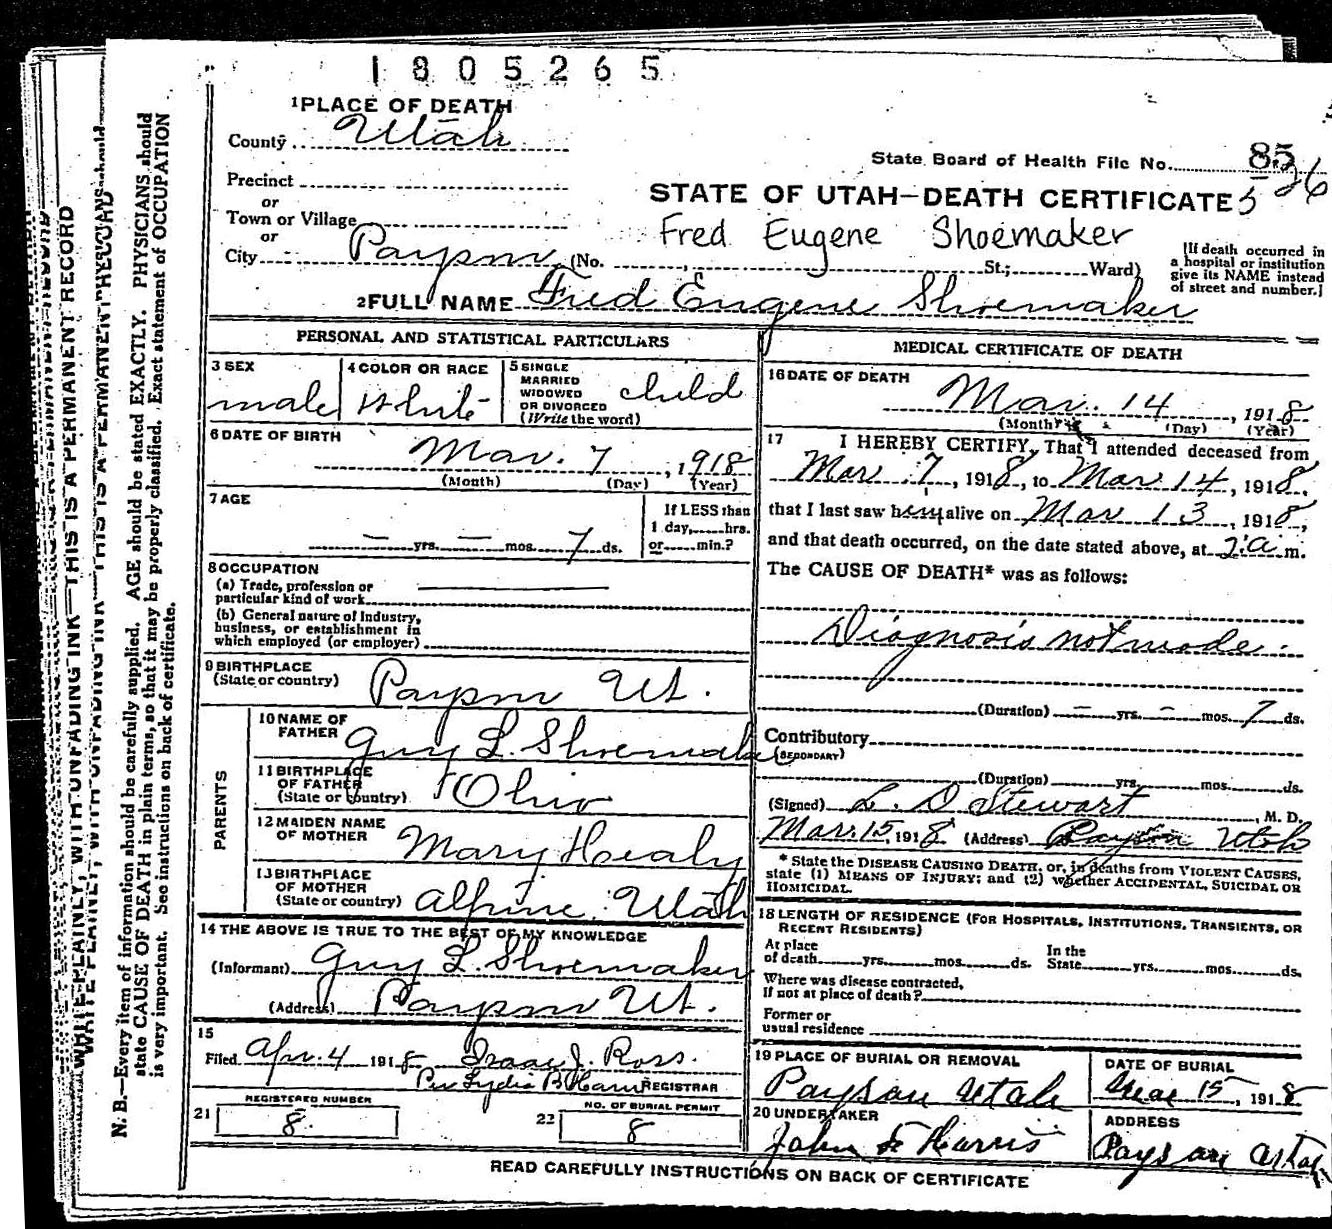 1805265
1 PLACE OF DEATH
County Utah
State Board of Health File No. 85
526
Precinct
or
Town or Village
or
STATE OF UTAH—DEATH CERTIFICATE
Fred Eugene Shoemaker
City Payson (No. St.; Ward)
[If death occurred in
a hospital or institution
give its NAME instead
of street and number.]
2 FULL NAME Fred Eugene Shoemaker
PERSONAL AND STATISTICAL PARTICULARS
3 SEX
male
4 COLOR OR RACE
White
5 SINGLE
MARRIED
WIDOWED
OR DIVORCED
(Write the word)
child
6 DATE OF BIRTH
Mar. 7, 1918
(Month) (Day) (Year)
7 AGE
— yrs. — mos. 7 ds.
If LESS than
1 day, hrs.
or min.?
8 OCCUPATION
(a) Trade, profession or
particular kind of work
(b) General nature of Industry,
business, or establishment in
which employed (or employer)
9 BIRTHPLACE
(State or country) Payson Ut.
PARENTS
10 NAME OF
FATHER Guy L. Shoemaker
11 BIRTHPLACE
OF FATHER
(State or country) Ohio
12 MAIDEN NAME
OF MOTHER Mary Healy
13 BIRTHPLACE
OF MOTHER
(State or country) Alpine Utah
14 THE ABOVE IS TRUE TO THE BEST OF MY KNOWLEDGE
(Informant) Guy L. Shoemaker
(Address) Payson Ut.
15
Filed Apr. 4 1918 Isaac J. Ross.
Per Lydia B Ham REGISTRAR
REGISTERED NUMBER
21 8.
NO. OF BURIAL PERMIT
22 8
MEDICAL CERTIFICATE OF DEATH
16 DATE OF DEATH
Mar. 14, 1918
(Month) (Day) (Year)
17 I HEREBY CERTIFY, That I attended deceased from
Mar 7, 1918, to Mar 14, 1918.
that I last saw him alive on Mar 13, 1918,
and that death occurred, on the date stated above, at 2 a m.
The CAUSE OF DEATH* was as follows:
Diagnosis not made.
(Duration) — yrs. — mos. 7 ds.
Contributory
(SECONDARY)
(Duration) yrs. mos. ds.
(Signed) L. D Stewart, M. D.
Mar. 15, 1918 (Address) Payson Utah
* State the DISEASE CAUSING DEATH, or, in deaths from VIOLENT CAUSES,
state (1) MEANS OF INJURY; and (2) whether ACCIDENTAL, SUICIDAL OR
HOMICIDAL.
18 LENGTH OF RESIDENCE (FOR HOSPITALS, INSTITUTIONS, TRANSIENTS, OR
RECENT RESIDENTS)
At place
of death yrs. mos. ds.
In the
State yrs. mos. ds.
Where was disease contracted,
If not at place of death?
Former or
usual residence
19 PLACE OF BURIAL OR REMOVAL
Payson Utah
DATE OF BURIAL
Mar 15, 1918
20 UNDERTAKER
John F Harris
ADDRESS
Payson Utah
READ CAREFULLY INSTRUCTIONS ON BACK OF CERTIFICATE
WRITE PLAINLY, WITH UNFADING INK—THIS IS A PERMANENT RECORD
N. B.—Every item of information should be carefully supplied. AGE should be stated EXACTLY. PHYSICIANS should
state CAUSE OF DEATH in plain terms, so that it may be properly classified. Exact statement of OCCUPATION
is very important. See instructions on back of certificate.